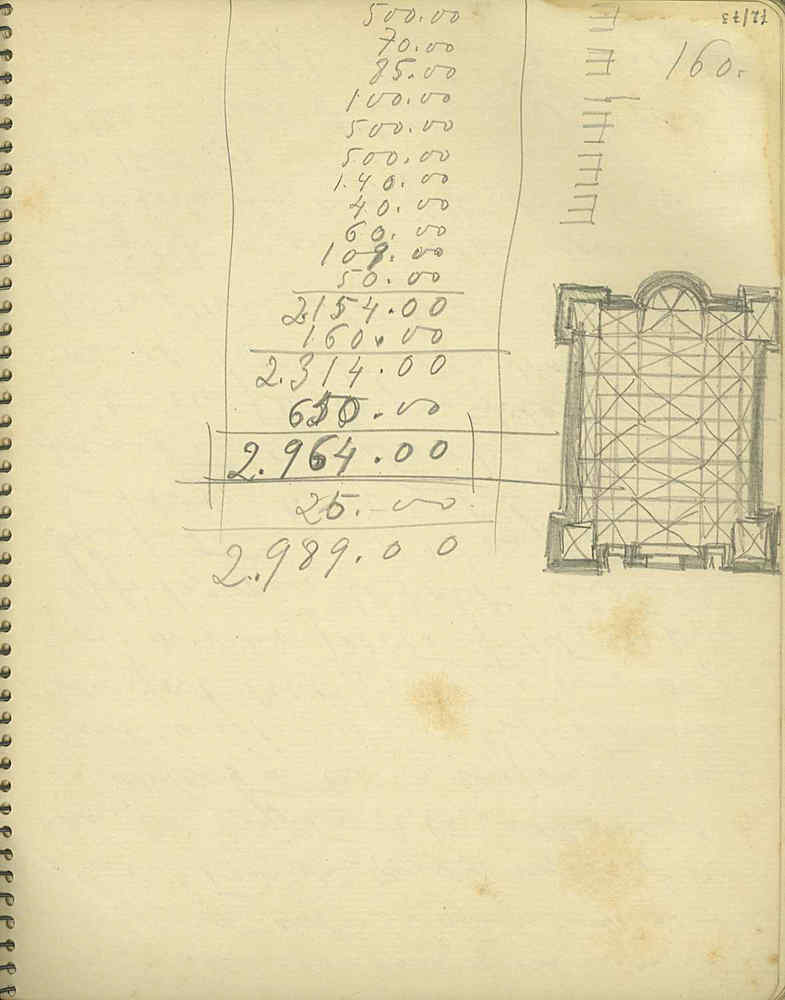 72/73
160.
500.00
70.00
85.00
100.00
500.00
500.00
1.40.00
40.00
60.00
109.00
50.00
2154.00
160.00
2.314.00
650.00
2.964.00
25.-00
2.989.00